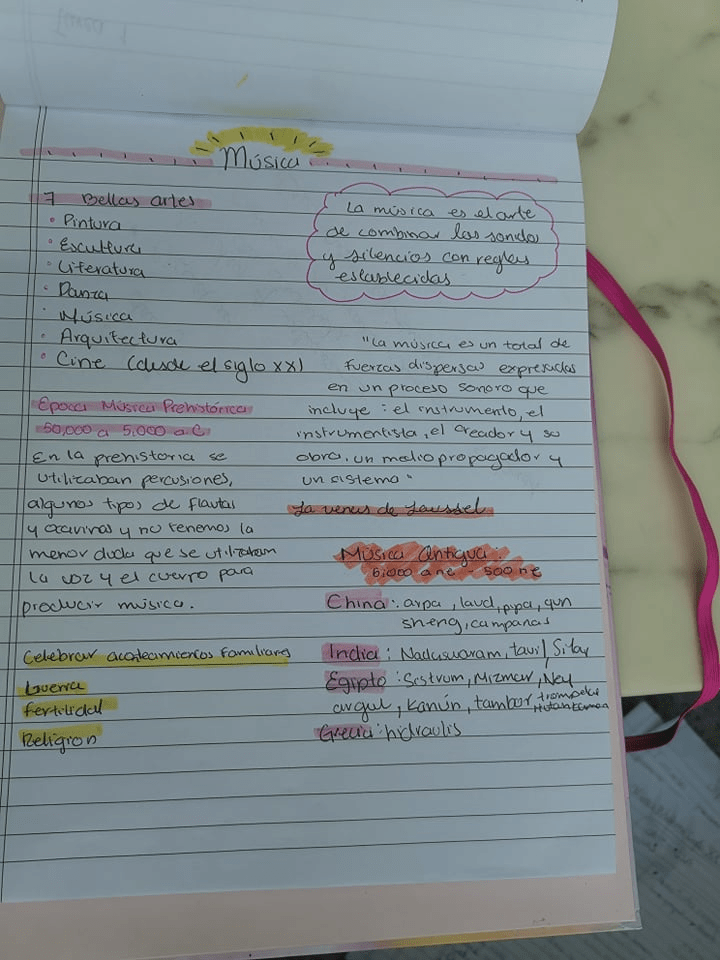 Música
7 Bellas artes
• Pintura
• Escultura
• Literatura
• Danza
• Música
• Arquitectura
• Cine (desde el siglo XX)
Época Música Prehistórica
50,000 a 5,000 a.C
En la prehistoria se
utilizaban percusiones,
algunos tipos de flautas
y ocarinas y no tenemos la
menor duda que se utilizaban
la voz y el cuerpo para
producir música.
Celebrar acontecimientos familiares
Guerra
Fertilidad
Religion
La música es el arte
de combinar los sonidos
y silencios con reglas
establecidas
"La música es un total de
fuerzas dispersas expresadas
en un proceso sonoro que
incluye: el instrumento, el
instrumentista, el creador y su
obra, un medio propagador y
un sistema"
La venus de Laussel
Música Antigua
6,000 a ne - 500 ne
China: arpa, laud, pipa, qun
sheng, campanas
India: Nadaswaram, tavil, Sitar
Egipto: Sistrum, Mizmar, Ney
argul, Kanún, tambor, trompeta
Grecia: hidraulis